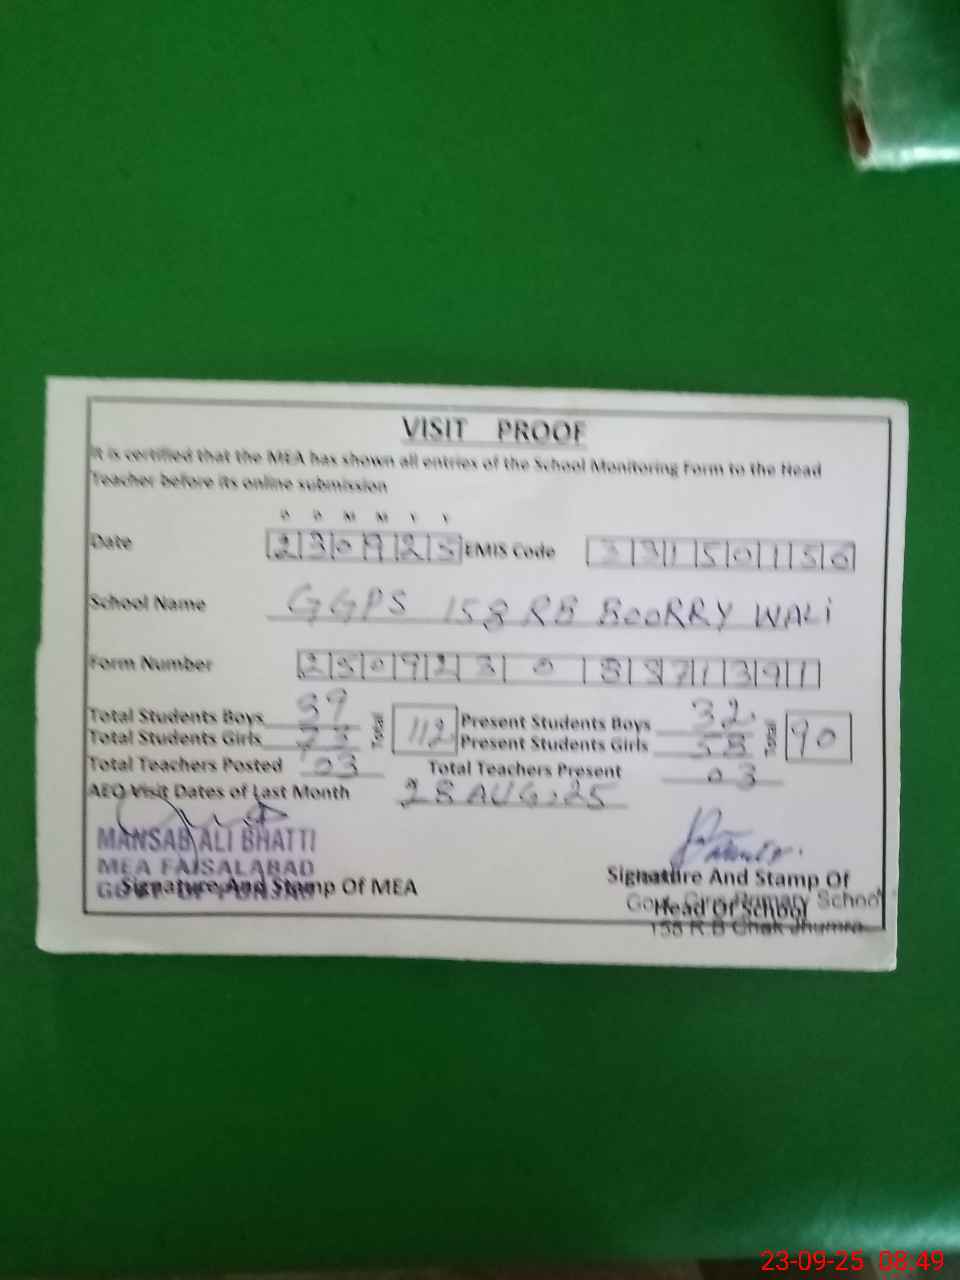 VISIT PROOF
It is certified that the MEA has shown all entries of the School Monitoring Form to the Head
Teacher before its online submission
D D M M Y Y
Date 230925 EMIS Code 33150156
School Name GGPS 158 RB BOORRY WALI
Form Number 250923 0
Total Students Boys 39 Total 112 Present Students Boys 32 Total 90
Total Students Girls 73 Present Students Girls 58
Total Teachers Posted 03 Total Teachers Present 03
AEO Visit Dates of Last Month 28 AUG. 25
MANSAB ALI BHATTI
MEA FAISALABAD
GOVT. OF PUNJAB
Signature And Stamp Of MEA
Signature And Stamp Of
Head Of School
Govt. Girls Primary School
158 R.B Chak Jhumra
23-09-25 08:49